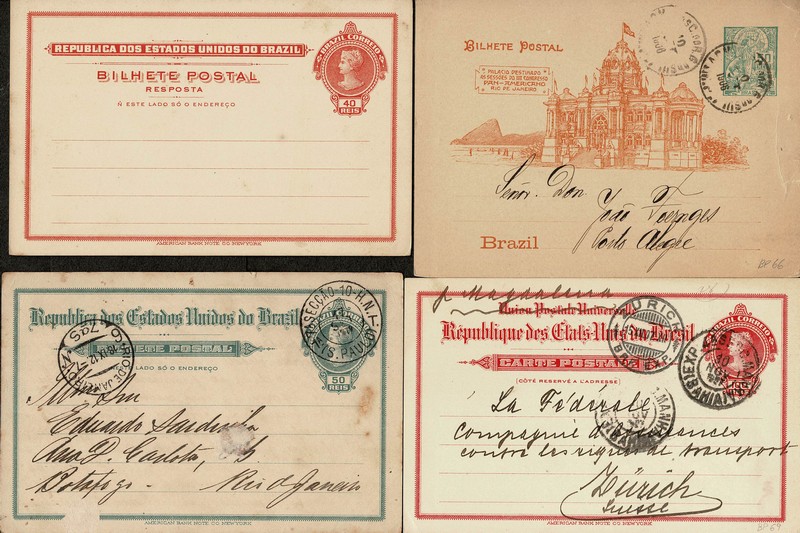 REPUBLICA DOS ESTADOS UNIDOS DO BRAZIL
BILHETE POSTAL
RESPOSTA
N'ESTE LADO SÓ O ENDEREÇO
BRAZIL CORREIO
40
REIS
AMERICAN BANK NOTE CO. NEW YORK
BILHETE POSTAL
PALACIO DESTINADO
ÁS SESSÕES DO 3º CONGRESSO
PAN-AMERICANO
RIO DE JANEIRO
1906
1906
Señr. Don
João
Porto Alegre
Brazil
BP.66
Republica dos Estados Unidos do Brazil
BILHETE POSTAL
50
REIS
SECCÃO-10-H.N.A.
S. PAULO
RIO DE JANEIRO
Eduardo
Botafogo - Rio de Janeiro
AMERICAN BANK NOTE CO. NEW YORK
p. Magdalena
Union Postale Universelle
République des États-Unis du Brésil
CARTE POSTALE
(CÔTÉ RESERVÉ A L'ADRESSE)
BAHIA
La Fédérale
Compagnie d'Assurances
contre les risques de transport
Zürich
Suisse
AMERICAN BANK NOTE CO. NEW YORK
BP.69